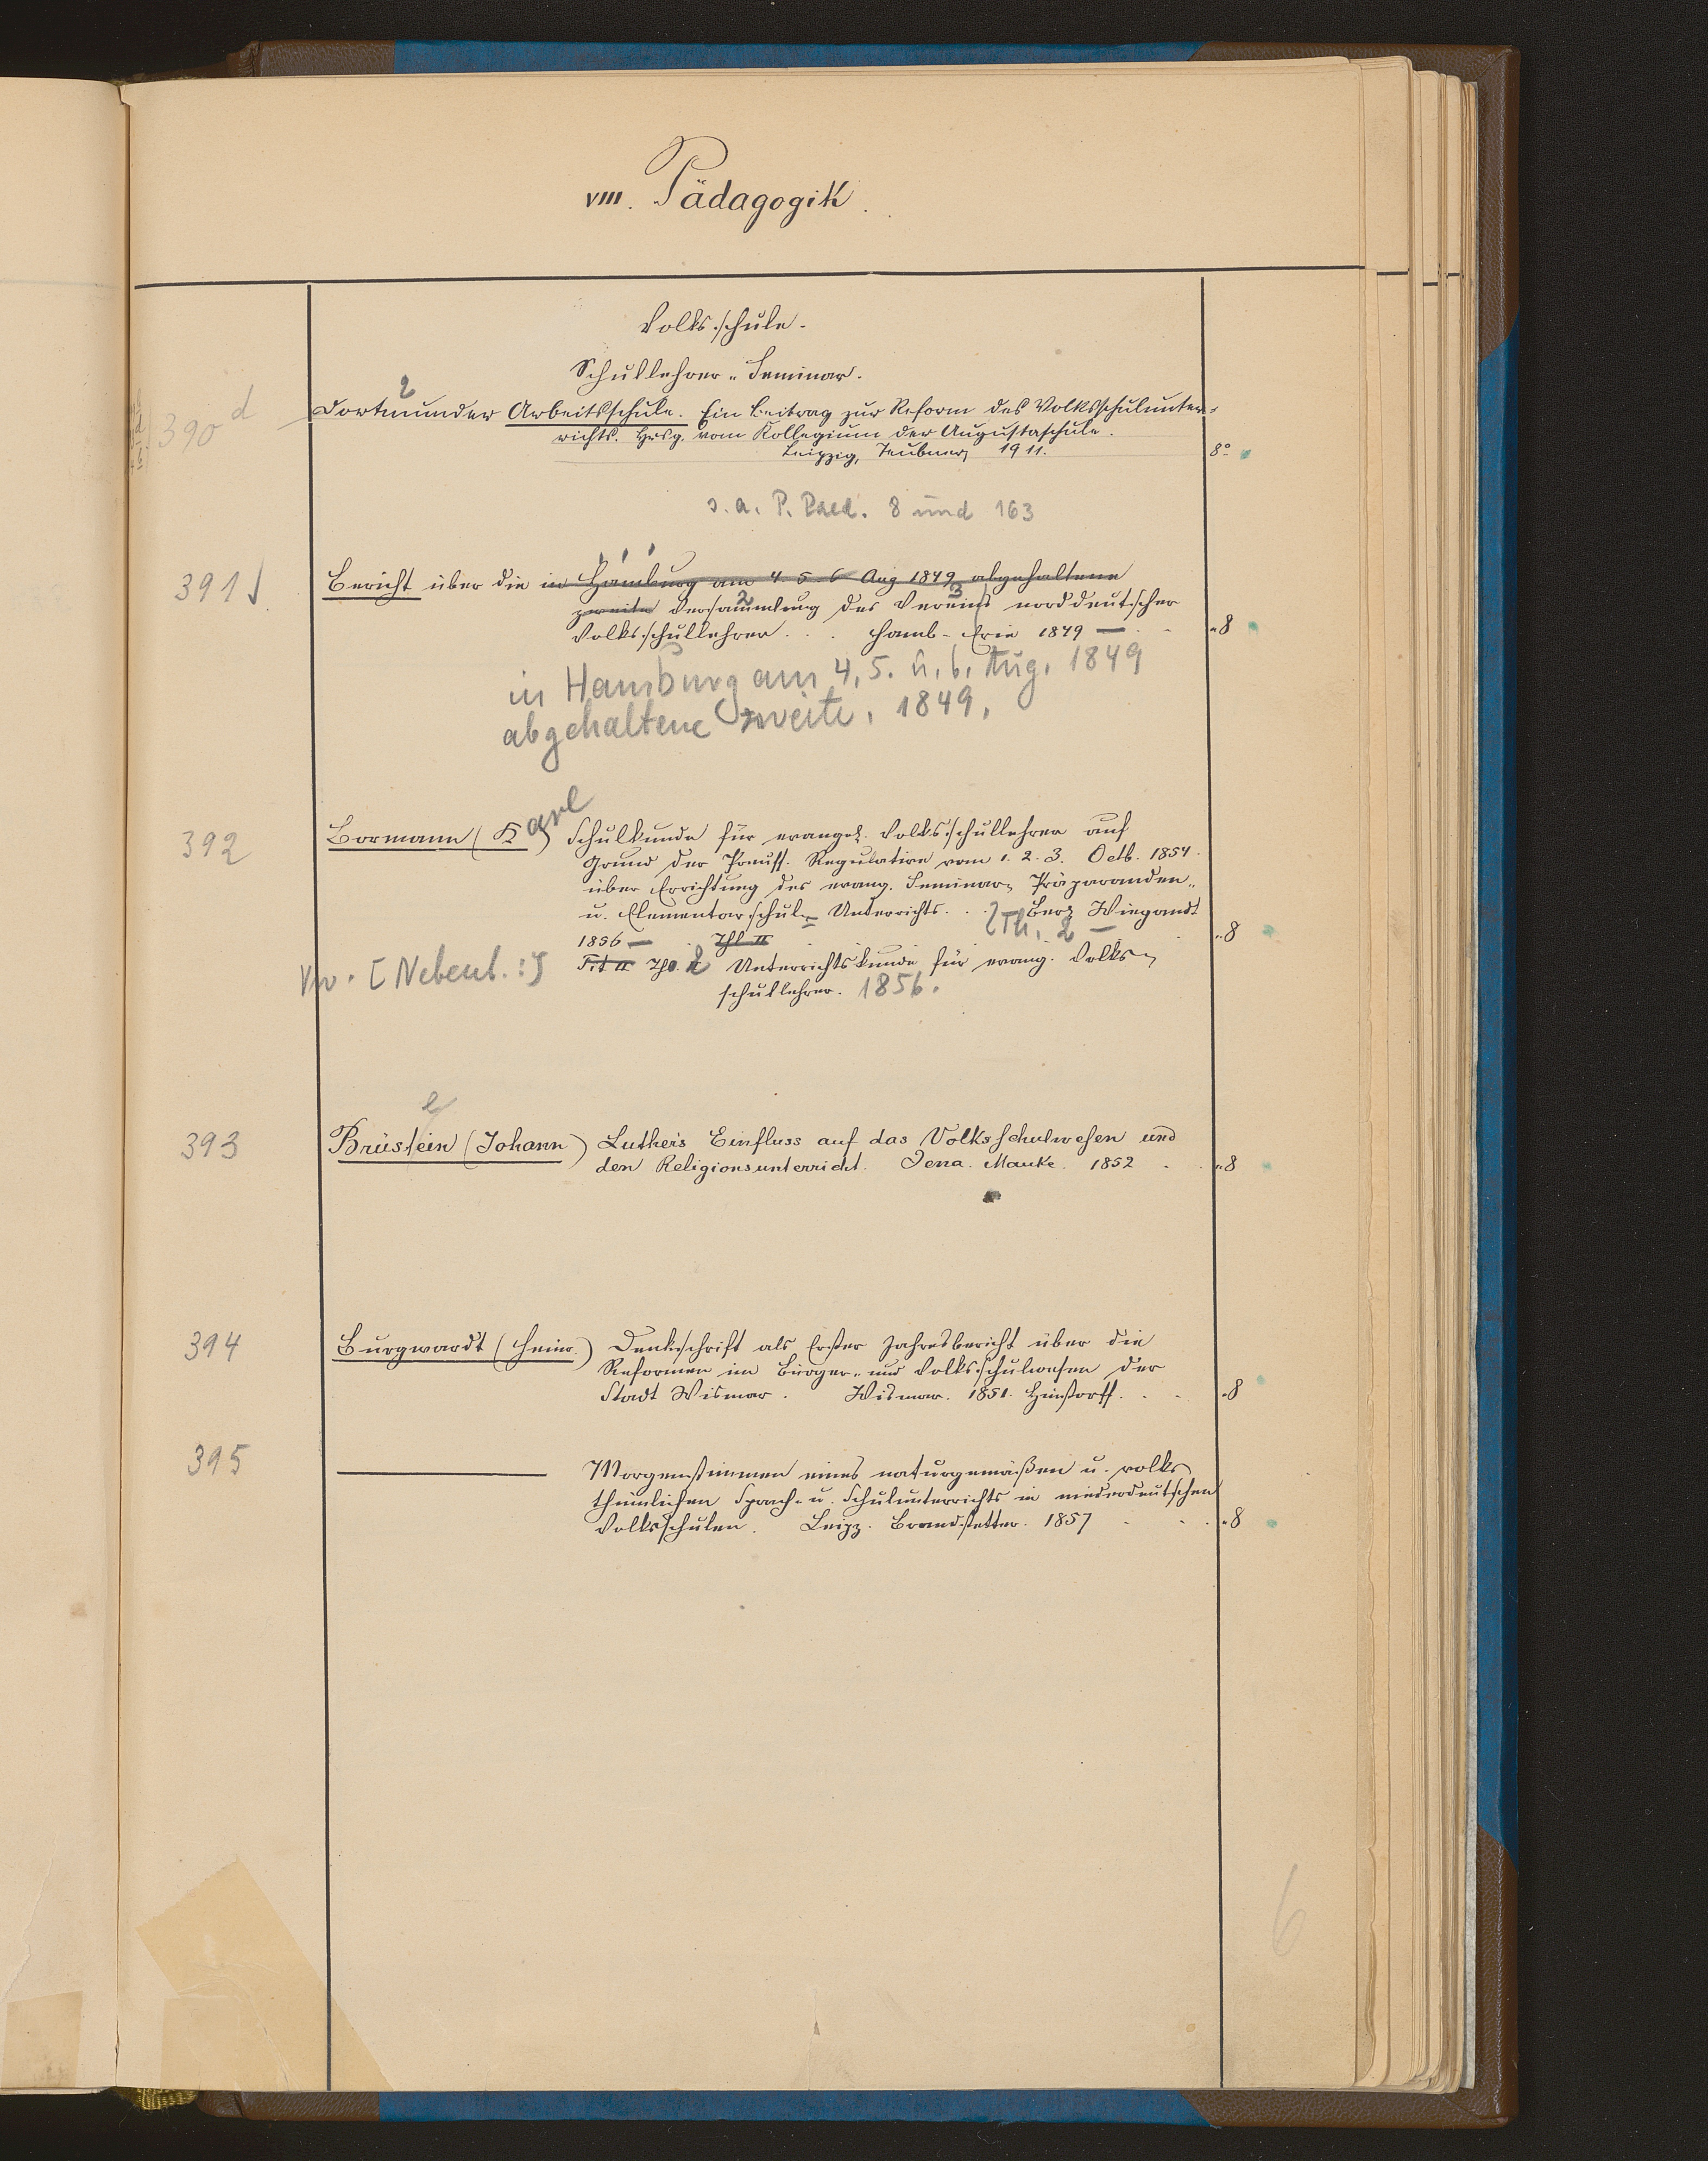 VIII. Pädagogik.
Volksschule.
Schullehrer-Seminar.
390 d
2
Dortmunder Arbeitsschule. Ein Beitrag zur Reform des Volksschulunter-
richts. Hrsg. vom Kollegium der Augustaschule.
Leipzig, Teubner, 1911. 8°
s. a. P. Paed. 8 und 163
391 Bericht über die in Hamburg am 4. 5. 6 Aug 1849 abgehaltene
2 3
zweite Versammlung des Vereins norddeutscher
Volksschullehrer . . . Hamb. Erie 1849 — . . 8
in Hamburg am 4, 5. u. 6. Aug. 1849
abgehaltene zweite. 1849.
392 Bormann (Karl) Schulkunde für evangel. Volksschullehrer auf
Grund der Preuss. Regulative vom 1. 2. 3. Octb. 1854.
über Errichtung des evang. Seminar-, Präparanden-
u. Elementarschul-Unterrichts. . . Berl Wiegandt
Th. 2 —
1856 — Thl II 8
Vw. [Nebent.:] Tit II Thl. 2 Unterrichtskunde für evang. Volks-
schullehrer. 1856.
e
393 Brüstein (Johann) Luther's Einfluss auf das Volksschulwesen und
den Religionsunterricht. Jena. Mauke. 1852 . . 8
394 Burgwardt (Heinr.) Denkschrift als Erster Jahresbericht über die
Reformen im Bürger- und Volksschulwesen der
Stadt Wismar. Wismar. 1851. Hinstorff. . . 8
395 ——— Morgenstimmen eines naturgemäßen u. volks-
thümlichen Sprach- u. Schulunterrichts in niederdeutschen
Volksschulen. Leipz. Brandstetter. 1857 . . . 8
6